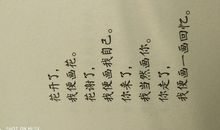 花开了，
我便画花。
花谢了，
我便画我自己。
你来了，
我当然画你。
你走了，
我便画一画回忆。